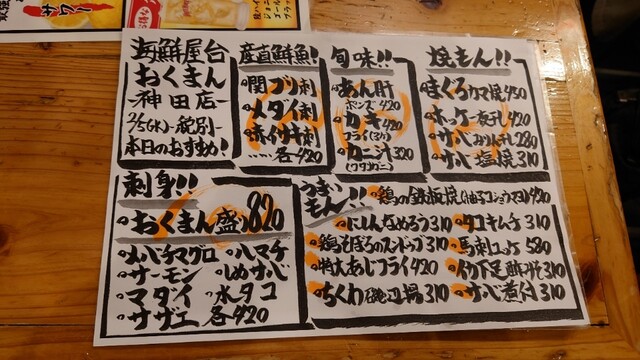 サワー
海鮮屋台
おくまん
-神田店-
2/5(水)-税別-
本日のおすすめ!
産直鮮魚!
関ブリ刺
メダイ刺
赤イサキ刺
……各420
旬味!!
あん肝
ポンズ 420
カキ
フライ(3ケ) 420
カニ汁 320
(ワタリガニ)
焼もん!!
まぐろカマ焼 450
ホッケ一夜干し 420
サバみりん干し 280
サバ塩焼 310
刺身!!
おくまん盛り 820
メバチマグロ ハマチ
サーモン しめサバ
マダイ 水タコ
サザエ 各420
うまいもん!!
鶏の鉄板焼(柚子コショウマヨ) 420
にしんなめろう 310
タコキムチ 310
鶏そぼろのスンドゥブ 310
馬刺ユッケ 580
特大あじフライ 420
イカ下足酢みそ 310
ちくわ磯辺揚 310
サバ煮付 310